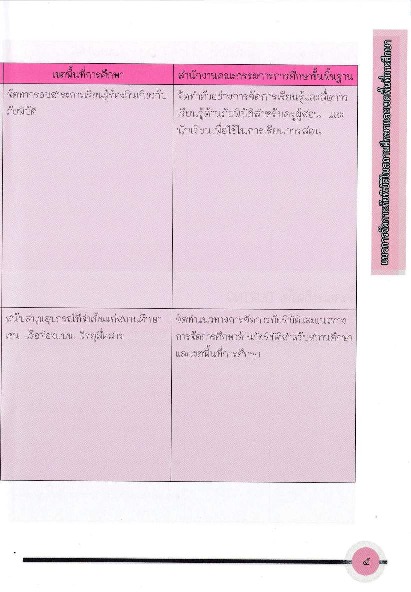 เขตพื้นที่การศึกษา
สำนักงานคณะกรรมการการศึกษาขั้นพื้นฐาน
จัดทำกรอบสาระการเรียนรู้ท้องถิ่นเกี่ยวกับ
ภัยพิบัติ
จัดทำตัวอย่างการจัดการเรียนรู้และสื่อการ
เรียนรู้ด้านภัยพิบัติสำหรับครูผู้สอน และ
นักเรียนเพื่อใช้ในการเรียนการสอน
สนับสนุนอุปกรณ์ที่จำเป็นแก่สถานศึกษา
เช่น เรือท้องแบน วิทยุสื่อสาร
จัดทำแนวทางการจัดการภัยพิบัติและแนวทาง
การจัดการศึกษาด้านภัยพิบัติสำหรับสถานศึกษา
และเขตพื้นที่การศึกษา
แนวทางจัดการภัยพิบัติในสถานศึกษาและเขตพื้นที่การศึกษา
๕